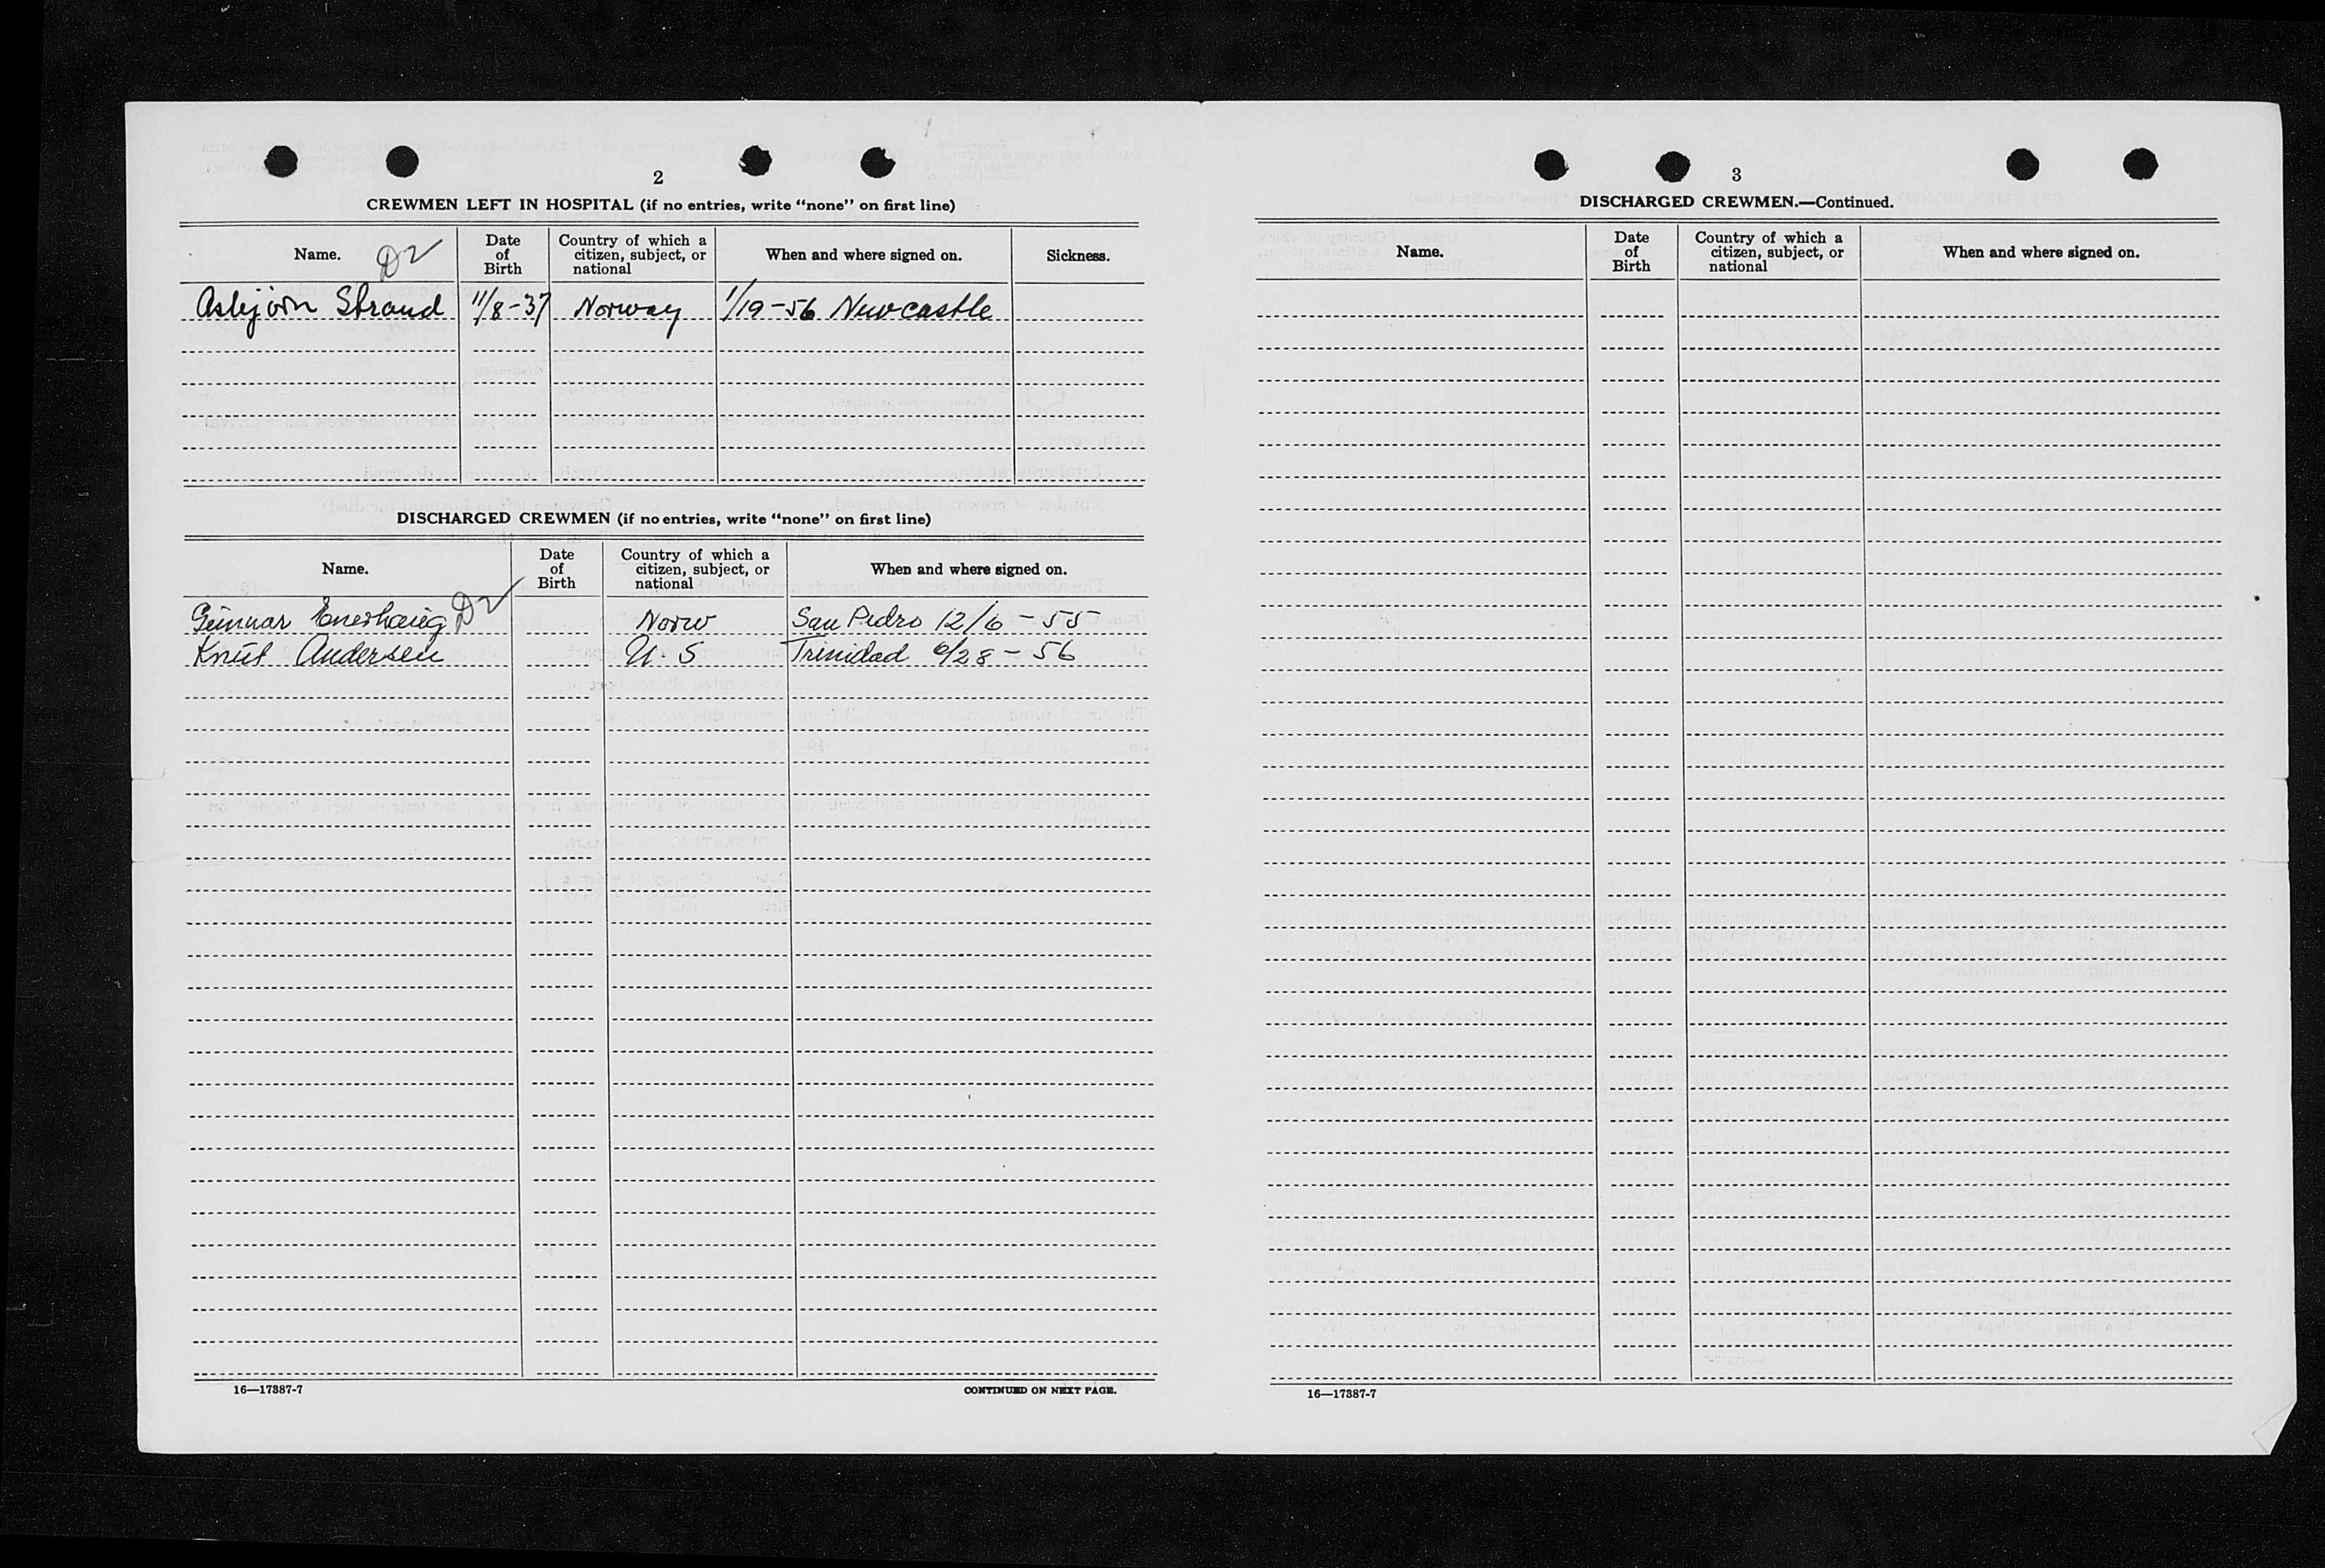 2
CREWMEN LEFT IN HOSPITAL (if no entries, write "none" on first line)
Name. D2 ✓ Date of Birth Country of which a citizen, subject, or national When and where signed on. Sickness.
Asbjörn Strand 11/8-37 Norway 1/19-56 Newcastle
DISCHARGED CREWMEN (if no entries, write "none" on first line)
Name. Date of Birth Country of which a citizen, subject, or national When and where signed on.
Gunnar Enerhaug D2 ✓ Norw San Pedro 12/6-55
Knut Andersen U.S Trinidad 6/28-56
16—17387-7 CONTINUED ON NEXT PAGE.
3
DISCHARGED CREWMEN.—Continued.
Name. Date of Birth Country of which a citizen, subject, or national When and where signed on.
16—17387-7